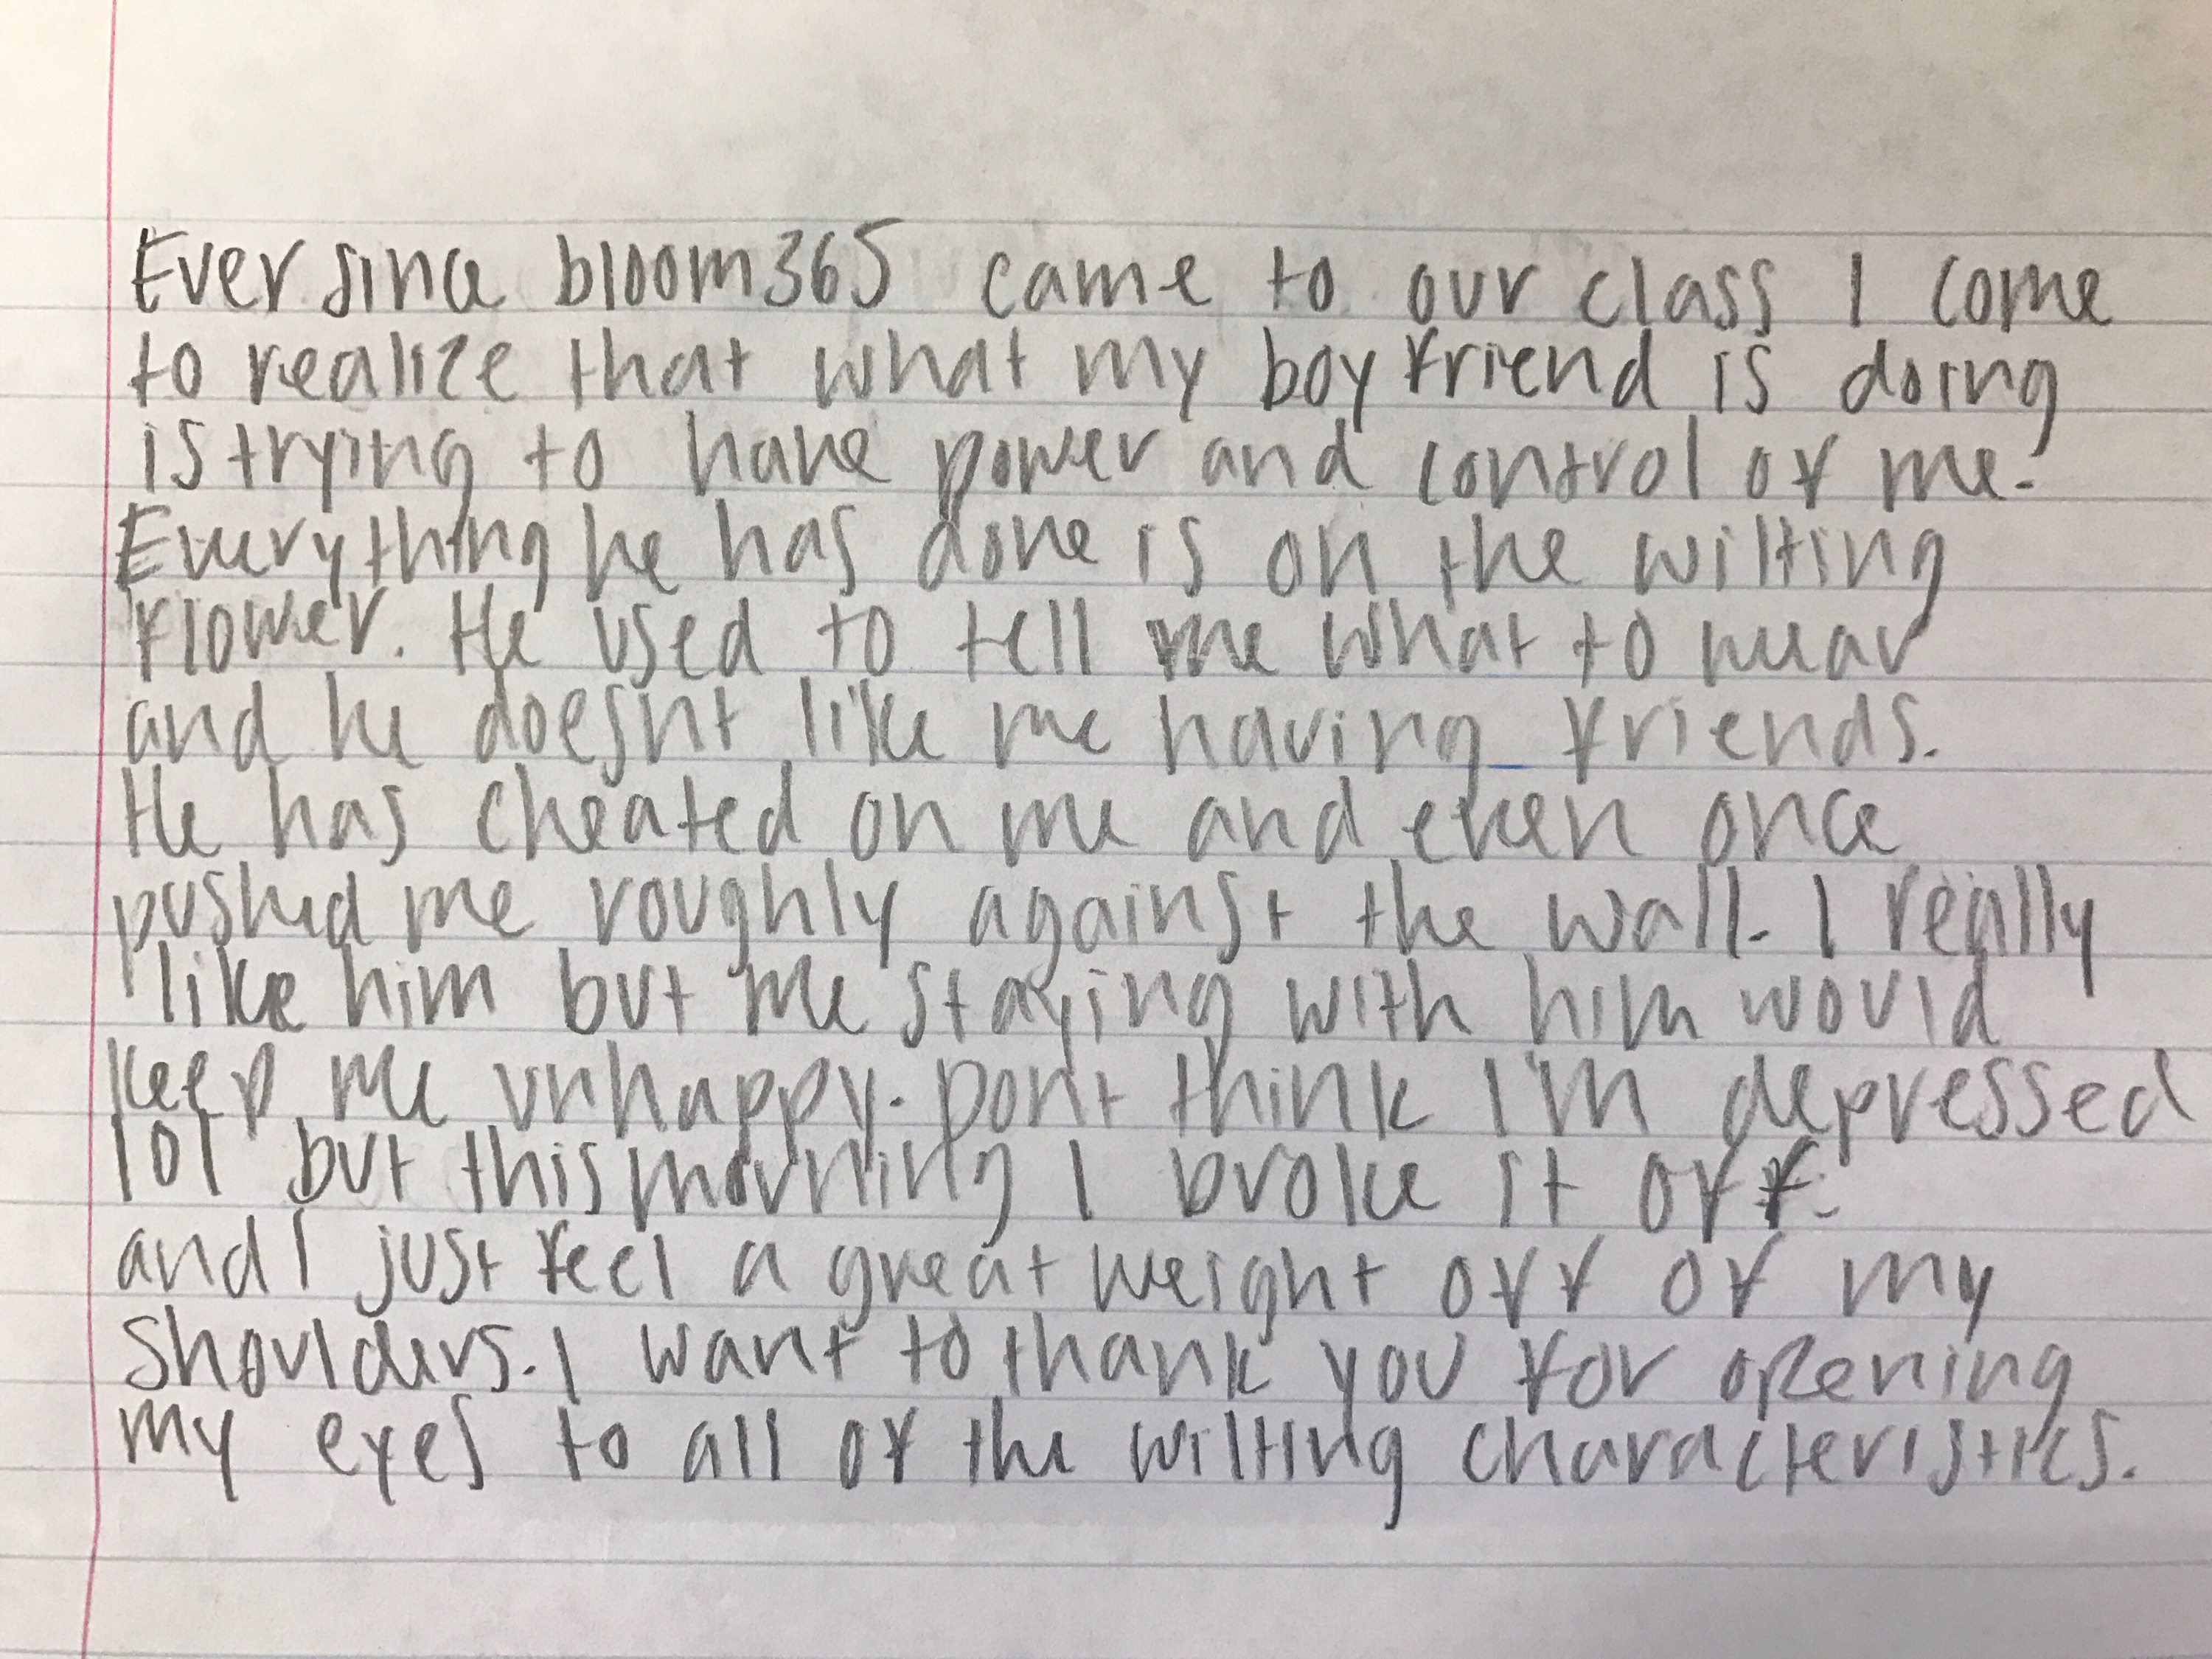 Ever since bloom365 came to our class I come
to realize that what my boyfriend is doing
is trying to have power and control of me.
Everything he has done is on the wilting
flower. He used to tell me what to wear
and he doesnt like me having friends.
He has cheated on me and even once
pushed me roughly against the wall. I really
like him but me staying with him would
keep me unhappy. Dont think I'm depressed
lol but this morning I broke it off.
and I just feel a great weight off of my
shoulders. I want to thank you for opening
my eyes to all of the wilting characteristics.